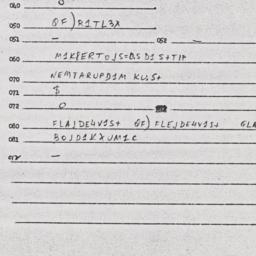 040 0
050 GF)R1TL3X
051 — 052 —
060 M1KPERTO,IS=BSD1S+TIP
070 NEMTARUPD1M KUS+
071 $
072 0
080 FLAJDE4V1S+ GF)FLEJDE4V1I+ GLA
081 BOJD1KXUM1C
—